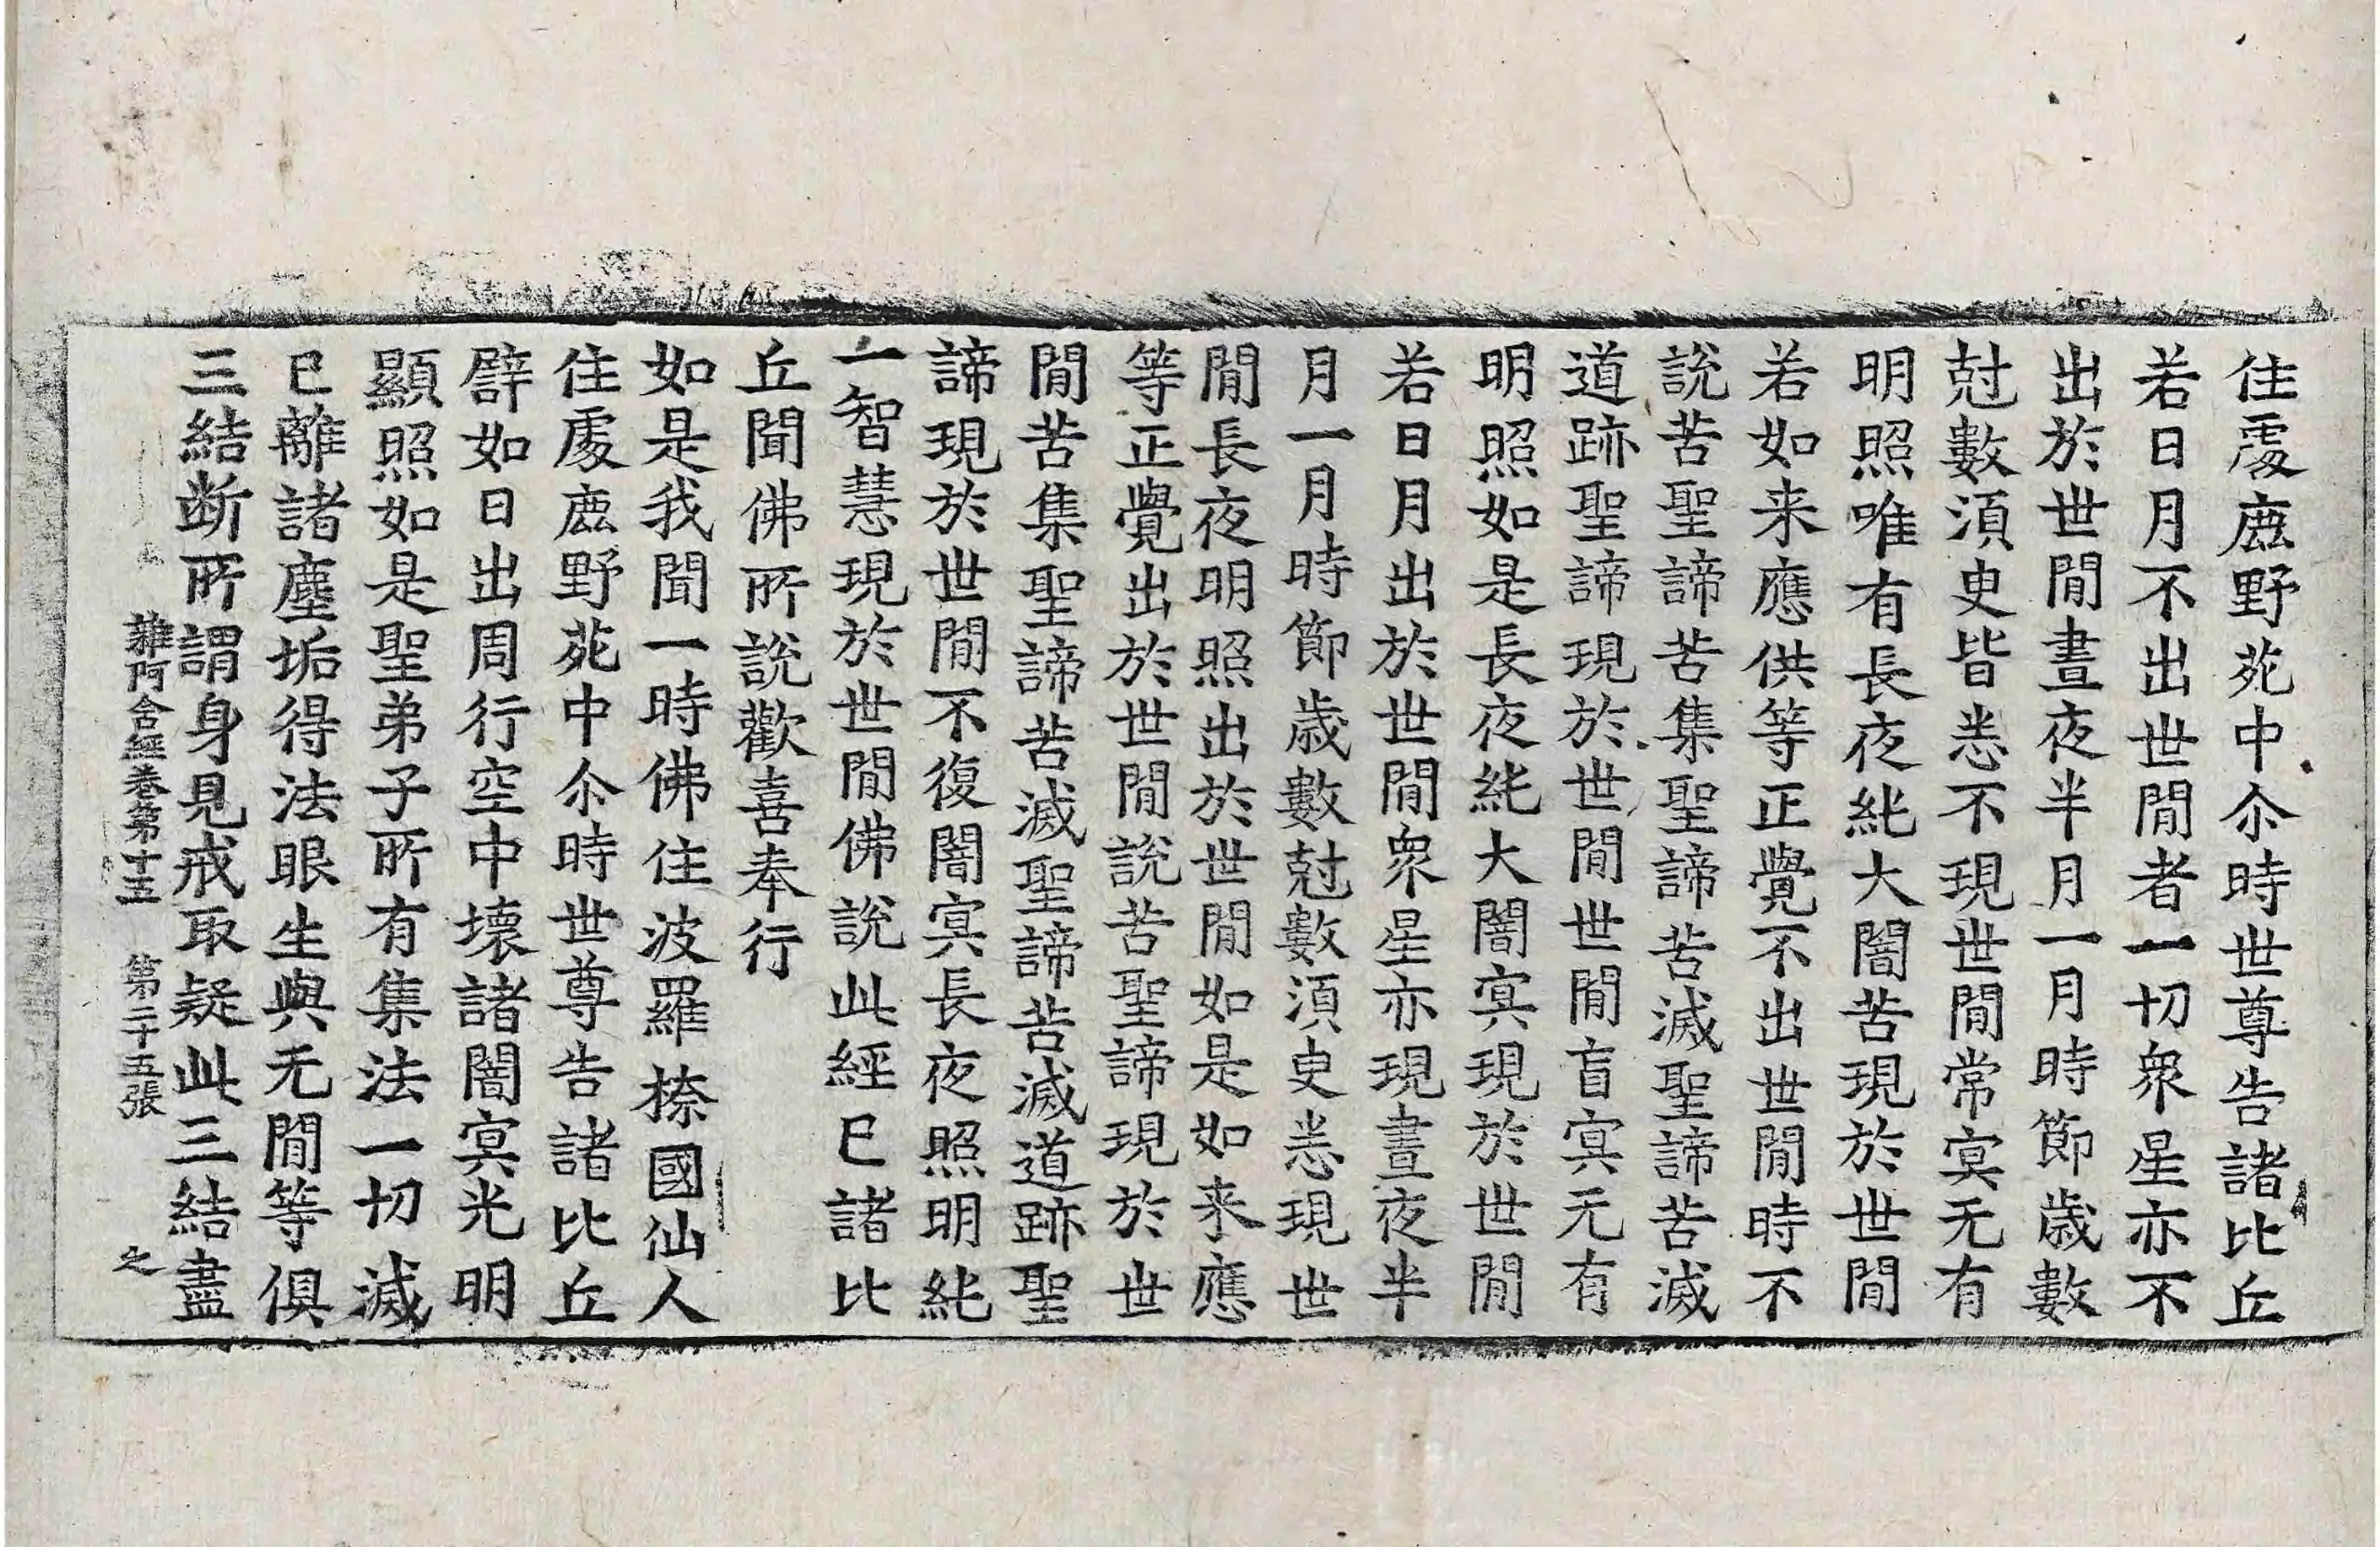 住處鹿野苑中尒時世尊告諸比丘
若日月不出世閒者一切衆星亦不
出於世閒晝夜半月一月時節歲數
尅數湏臾皆悉不現世閒常冥无有
明照唯有長夜純大闇苦現於世閒
若如来應供等正覺不出世閒時不
說苦聖諦苦集聖諦苦滅聖諦苦滅
道跡聖諦現於世閒世閒盲冥无有
明照如是長夜純大闇冥現於世閒
若日月出於世閒衆星亦現晝夜半
月一月時節歲數尅數湏臾悉現世
閒長夜明照出於世閒如是如来應
等正覺出於世閒說苦聖諦現於世
閒苦集聖諦苦滅聖諦苦滅道跡聖
諦現於世閒不復闇冥長夜照明純
一智慧現於世閒佛說此經已諸比
丘聞佛所說歡喜奉行
如是我聞一時佛住波羅㮈國仙人
住處鹿野苑中尒時世尊告諸比丘
譬如日出周行空中壞諸闇冥光明
顯照如是聖弟子所有集法一切滅
已離諸塵垢得法眼生與无閒等俱
三結斷所謂身見戒取疑此三結盡
雜阿含經卷第十五 第二十五張 之